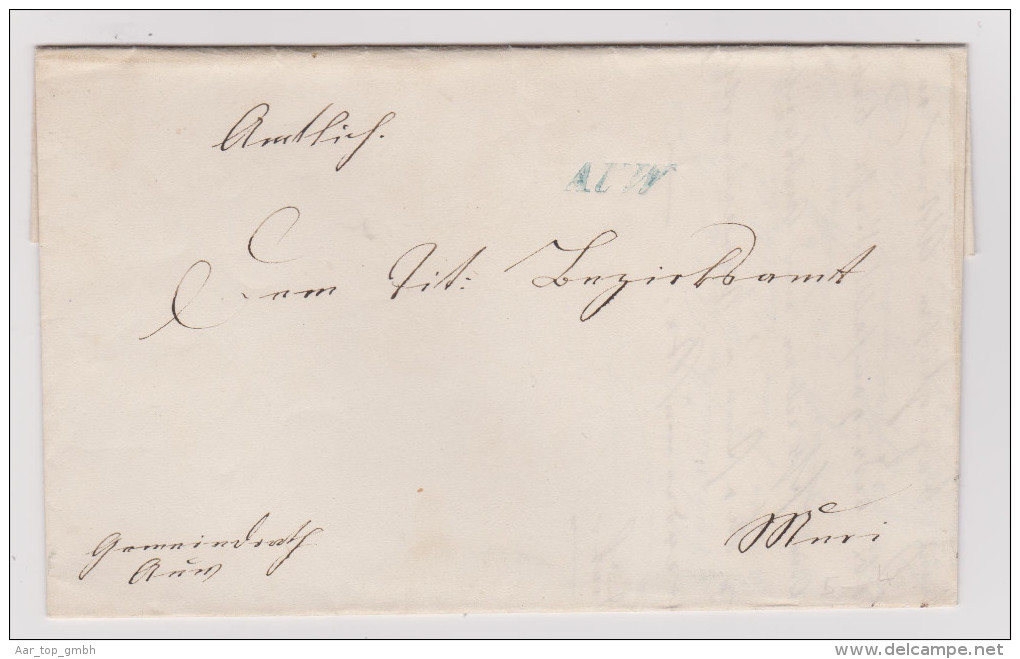 Amtlich.
AUW
Dem Tit: Bezirksamt
Muri
Gemeindrath
Auw
Aar_top_gmbh
delcampe.net